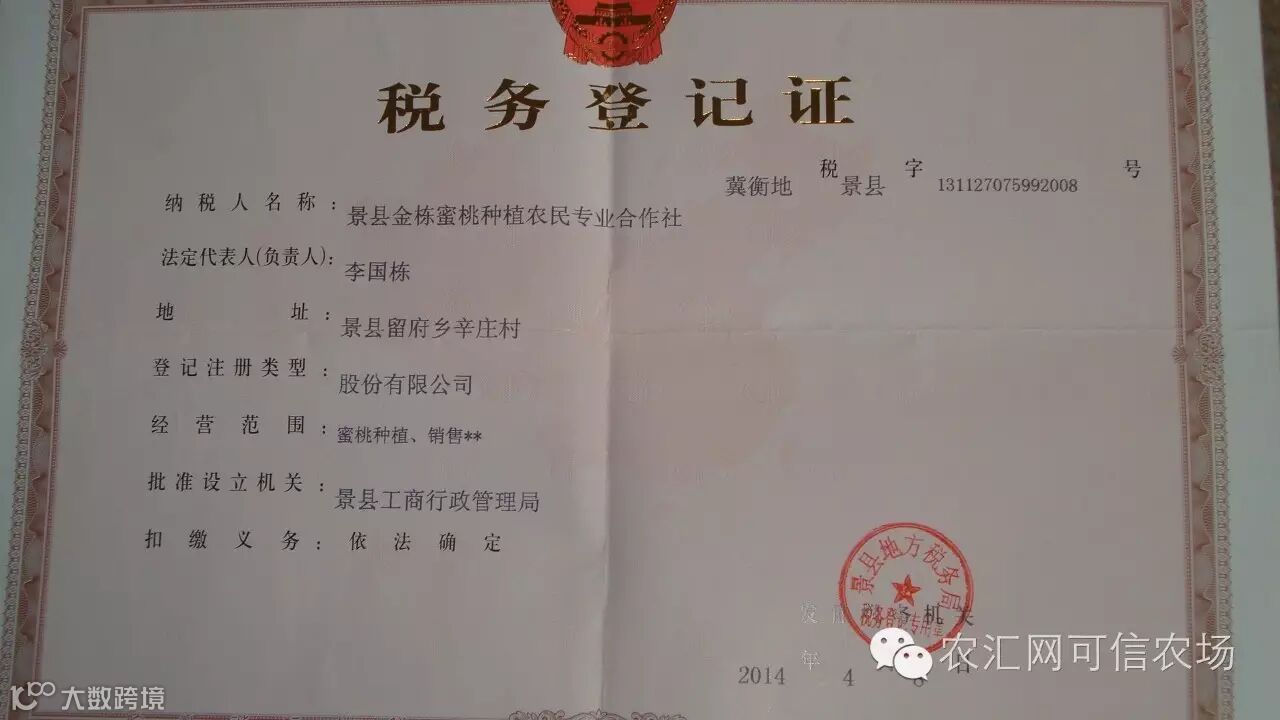 税务登记证
冀衡地 税 景县 字 131127075992008 号
纳税人名称: 景县金栋蜜桃种植农民专业合作社
法定代表人(负责人): 李国栋
地址: 景县留府乡辛庄村
登记注册类型: 股份有限公司
经营范围: 蜜桃种植、销售**
批准设立机关: 景县工商行政管理局
扣缴义务: 依法确定
景县地方税务局
税务登记专用章
发证税务机关
2014 年 4 月 8 日
农汇网可信农场
大数跨境